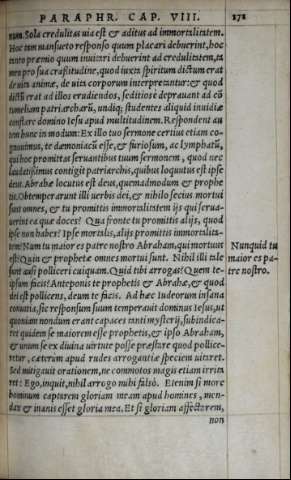 PARAPHR. CAP. VIII. 171
num. Sola credulitas uia est & aditus ad immortalitatem.
Hoc tam mansueto responso quum placari debuerint, hoc
tanto præmio quum inuitari debuerint ad credulitatem, ta
men pro sua crassitudine, quod iuxta spiritum dictum erat
de uita animæ, de uita corporum interpretantur: & quod
dictū erat ad illos erudiendos, seditiose deprauant ad cō
tumeliam patriarcharū, undiq; studentes aliquid inuidiæ
conflare domino Iesu apud multitudinem. Respondent au
tem hunc in modum: Ex illo tuo sermone certius etiam co-
gnouimus, te dæmoniacū esse, & furiosum, ac lymphatū,
qui hoc promittas seruantibus tuum sermonem, quod nec
laudatissimus contigit patriarchis, quibus loquutus est ipse
deus. Abrahæ locutus est deus, quemadmodum & prophe
tis. Obtemperarunt illi uerbis dei, & nihilo secius mortui
sunt omnes, & tu promittis immortalitatem ijs qui serua-
uerint ea quæ doces? Qua fronte tu promittis alijs, quod
ipse non habes? Ipse mortalis, alijs promittis immortalita-
tem? Num tu maior es patre nostro Abraham, qui mortuus
est? Quin & prophetæ omnes mortui sunt. Nihil illi tale
sunt ausi polliceri cuiquam. Quid tibi arrogas? Quem te-
ipsum facis? Anteponis te prophetis & Abrahæ, & quod
dei est pollicens, deum te facis. Ad hæc Iudeorum insana
conuitia, sic responsum suum temperauit dominus Iesus, ut
quoniam nondum erant capaces tanti mysterij, subindica-
ret quidem se maiorem esse prophetis, & ipso Abraham,
& unum se ex diuina uirtute posse præstare quod pollice-
retur, cæterum apud rudes arrogantiæ speciem uitaret.
Sed mitigauit orationem, ne commotos magis etiam irrita
ret: Ego, inquit, nihil arrogo mihi falsò. Etenim si more
hominum captarem gloriam meam apud homines, men-
dax & inanis esset gloria mea. Et si gloriam affectarem,
non
Nunquid tu
maior es pa-
tre nostro.